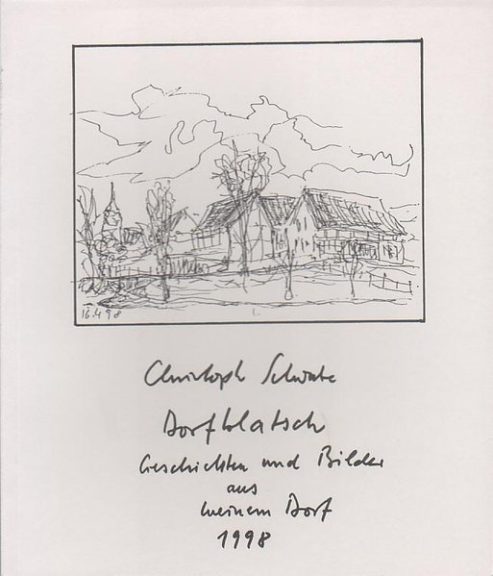 16.4.98
Christoph Schwabe
Dorfklatsch
Geschichten und Bilder
aus
meinem Dorf
1998